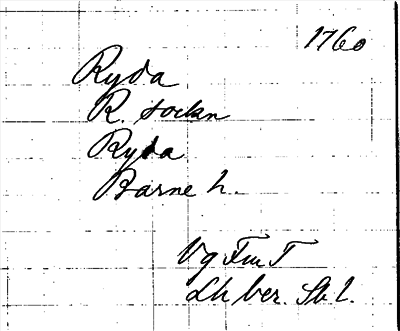 1760
Ryda
R. sockn
Ryda
Barne h.
Vg Fm T
Lh ber. Sk l.